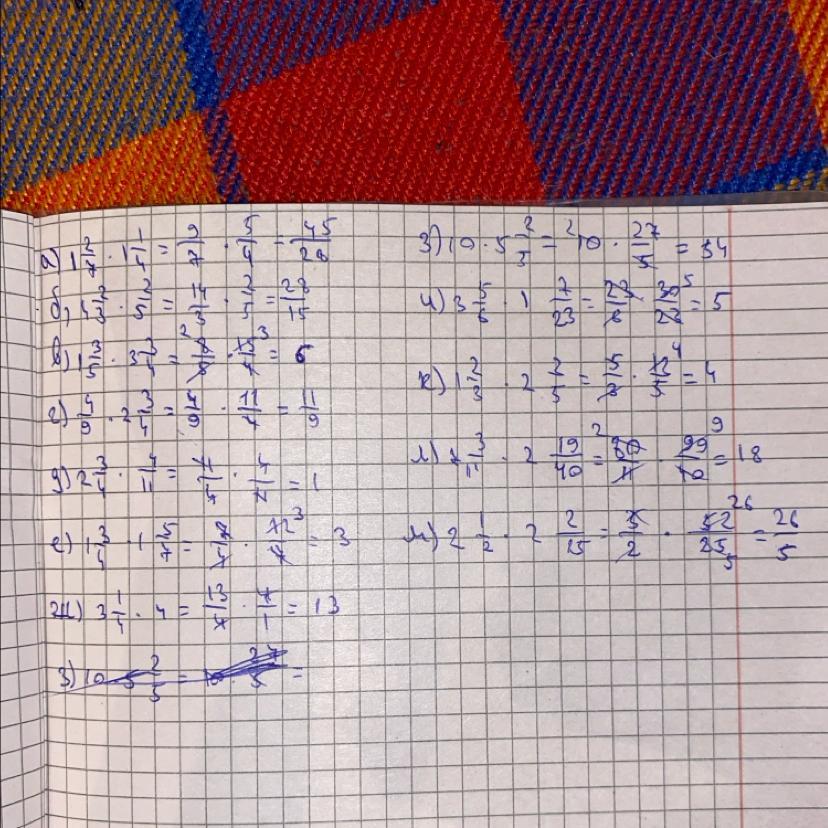 а) 1 2/7 · 1 1/4 = 9/7 · 5/4 = 45/28
б) 4 2/3 · 2/5 = 14/3 · 2/5 = 28/15
в) 1 3/5 · 3 3/4 = 8/5 · 15/4 = 6
г) 4/9 · 2 3/4 = 4/9 · 11/4 = 11/9
д) 2 3/4 · 4/11 = 11/4 · 4/11 = 1
е) 1 3/4 · 1 5/7 = 7/4 · 12/7 = 3
ж) 3 1/4 · 4 = 13/4 · 4/1 = 13
з) 10 · 5 2/5 = 10 · 27/5 =
з) 10 · 5 2/5 = 10 · 27/5 = 54
и) 3 5/6 · 1 7/23 = 23/6 · 30/23 = 5
к) 1 2/3 · 2 2/5 = 5/3 · 12/5 = 4
л) 7 3/11 · 2 19/40 = 80/11 · 99/40 = 18
м) 2 1/2 · 2 2/25 = 5/2 · 52/25 = 26/5